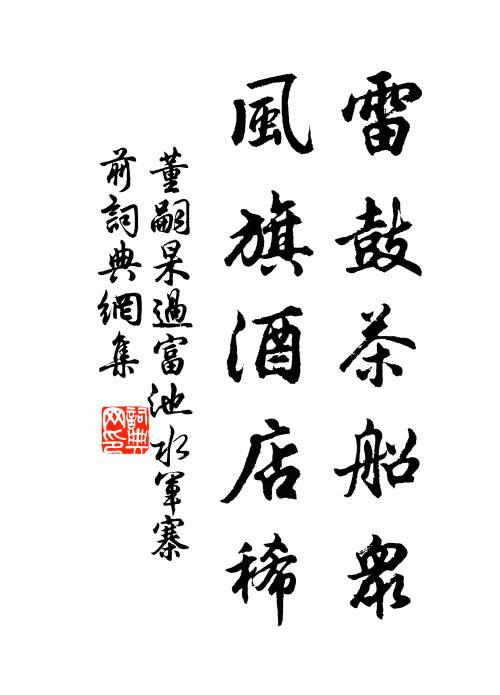 雷鼓茶船衆
風旗酒店稀
董嗣杲過富池水軍寨
前詞典網集
詞典網印